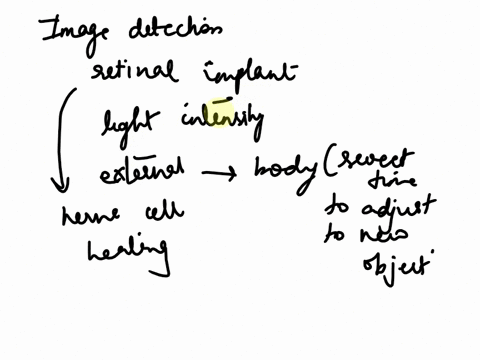 Image detection
retinal implant
light intensity
external → body (
time
nerve cell
to adjust
healing
to new
object